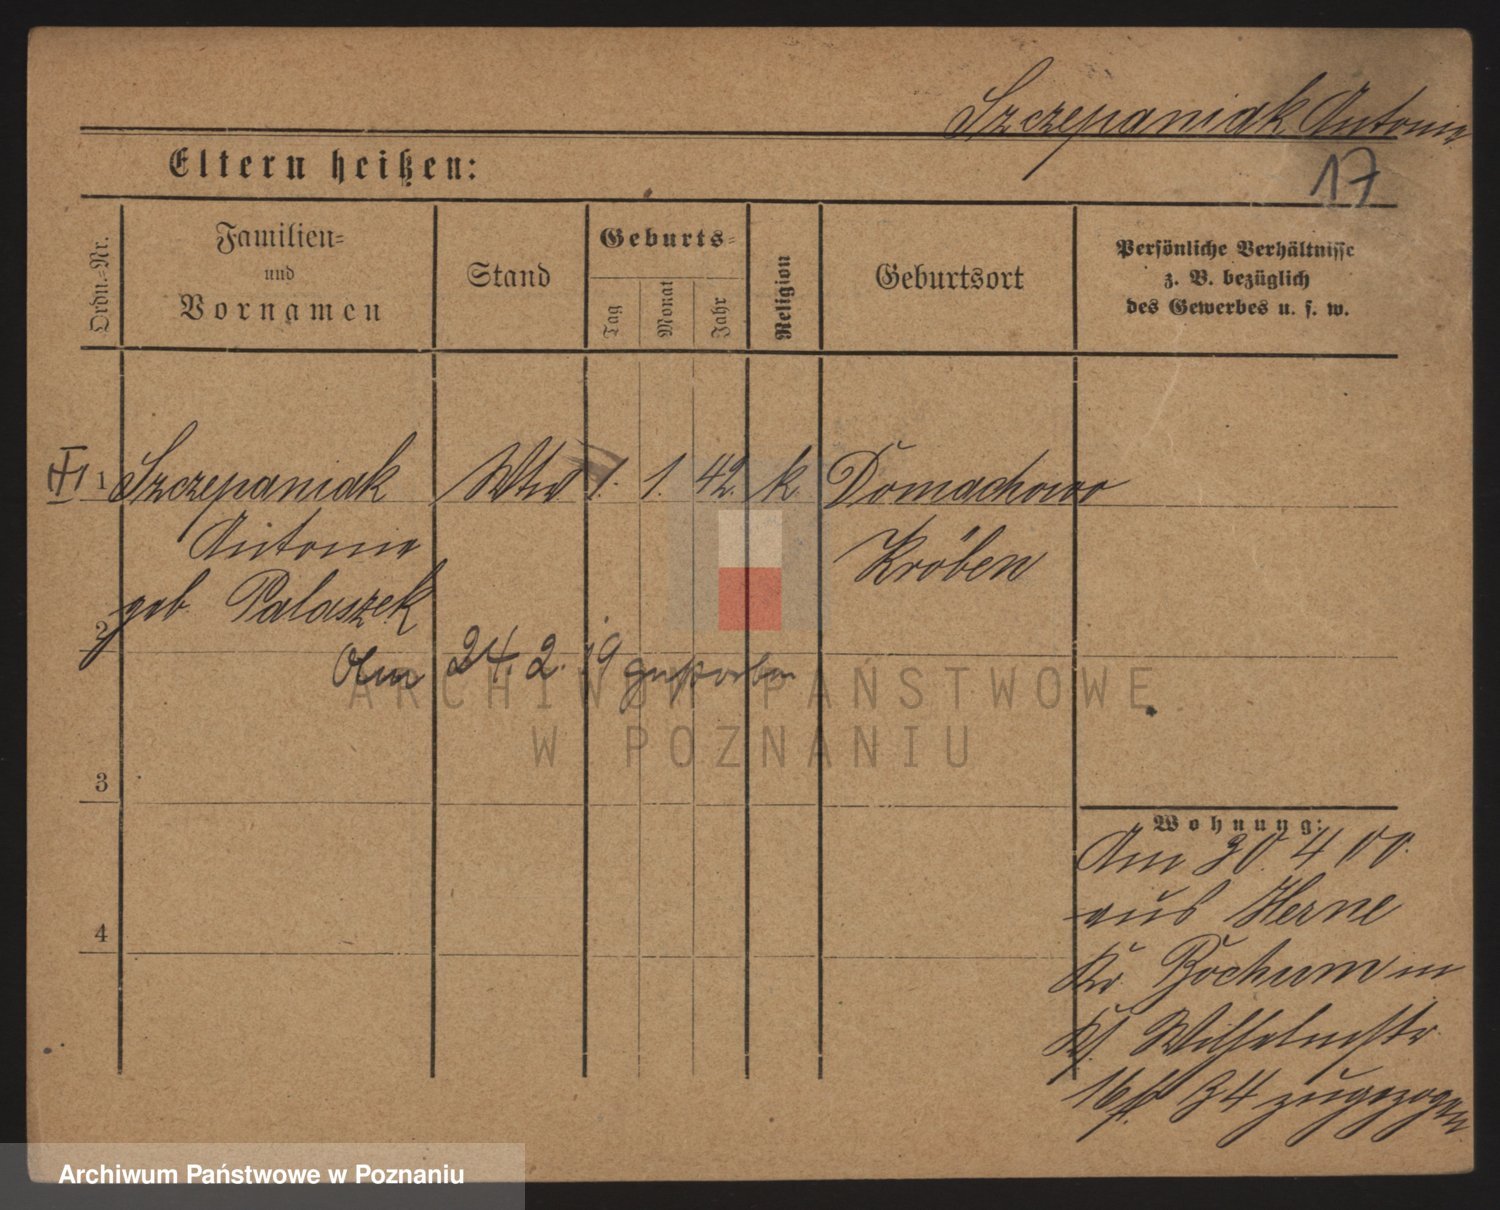 Szczepaniak Antonie
17
Eltern heißen:
Ordn.-Nr.
Familien-
und
Vornamen
Stand
Geburts-
Tag
Monat
Jahr
Religion
Geburtsort
Persönliche Verhältnisse
z. B. bezüglich
des Gewerbes u. s. w.
1 Szczepaniak Wtw 1. 1. 42. k. Domachowo
Antonie Kröben
geb. Palaszek
2
Am 24. 2. 19 gestorben
3
4
Wohnung:
Am 30. 4 00.
aus Herne
Kr. Bochum in
Wilhelmstr.
34 zugezogen
ARCHIWUM PAŃSTWOWE
W POZNANIU
Archiwum Państwowe w Poznaniu